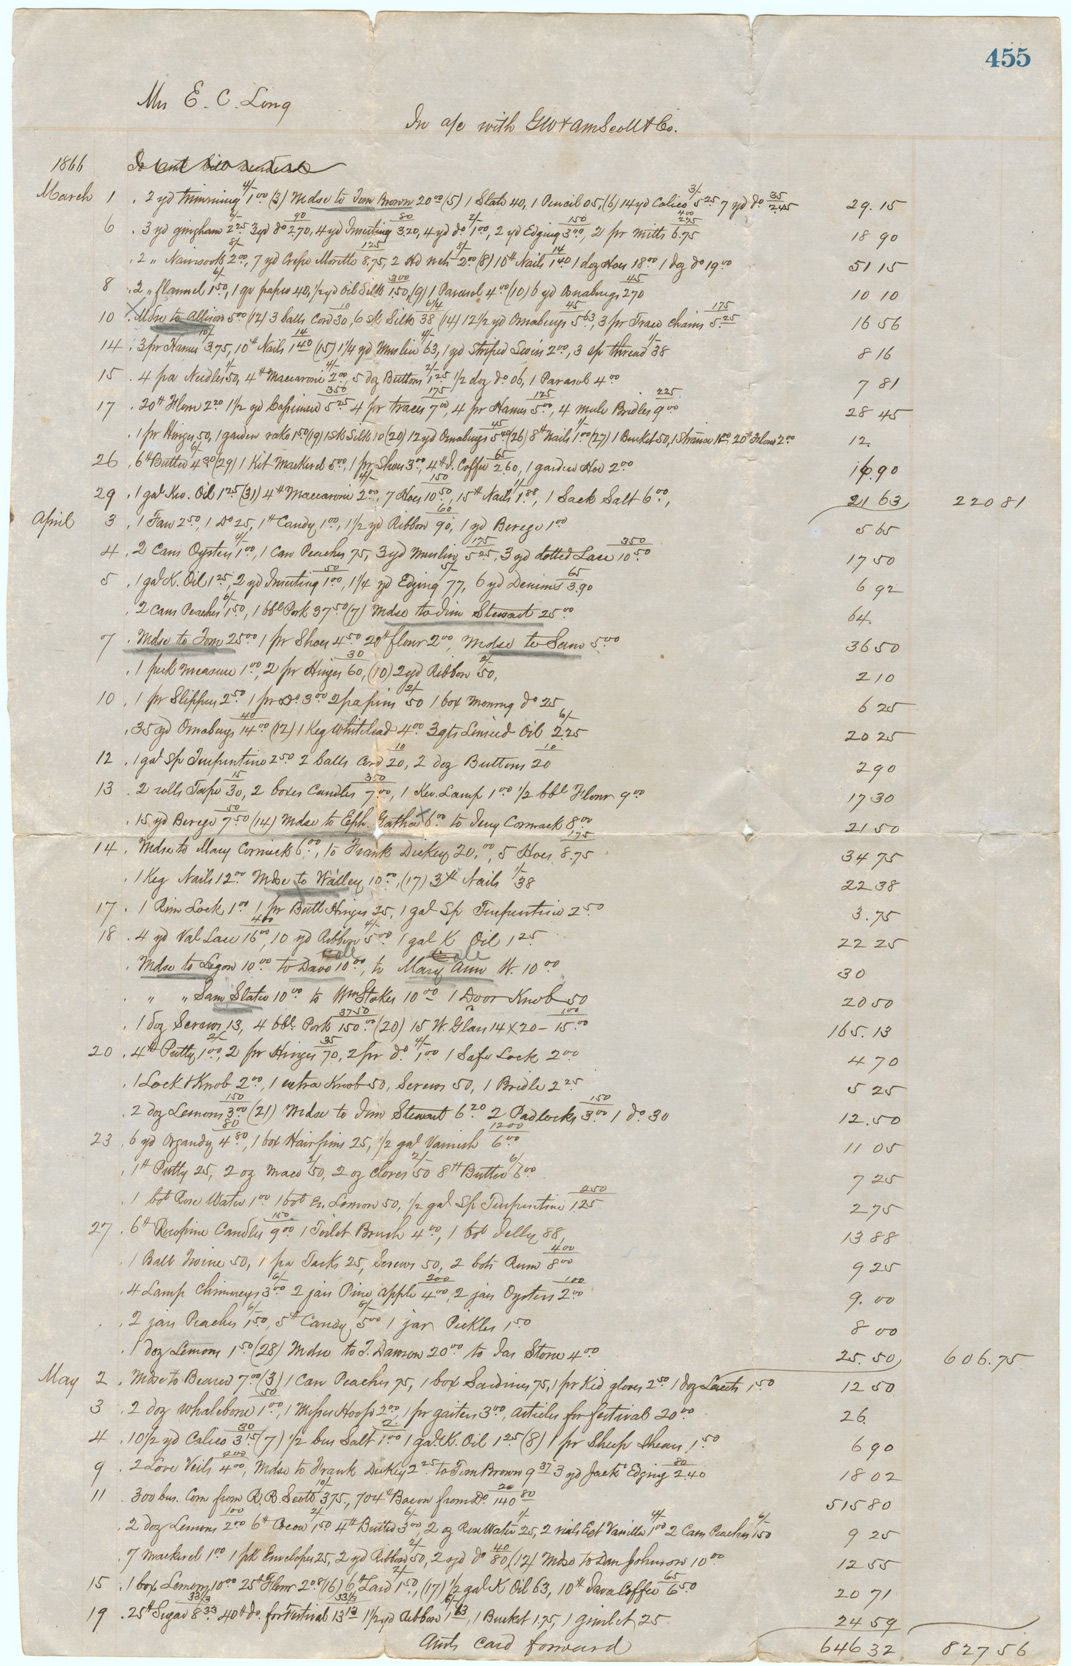 455
Mrs E. C. Long
In a/c with GW & AM Scott & Co.
1866
March 1 . 2 yd trimming 4/ 1 00 (3) Mdse to Tom Brown 20 00 (5) 1 Slate 40, 1 Pencil 05, (6) 14 yd Calico 3/ 5 25 7 yd do 35 2 45 29.15
6 . 3 yd gingham 2 25 3 yd do 90 2 70, 4 yd Inserting 80 3 20, 4 yd do 2/ 1 00, 2 yd Edging 150 3 00, 2 pr mitts 6.75 18 90
. 2 " Nansook 8/ 2 00, 7 yd Crepe Moretto 125 8.75, 2 Hd nets 8/ 2 00 (8) 10 lb Nails 14 1 40 1 doz Hoes 18 00 1 doz do 19 00 51 15
8 . 2 " flannel 6/ 1 50, 1 qr paper 40, 1/2 yd Oil Silk 300 1 50, (9) 1 Parasol 4 00 (10) 6 yd Osnaburgs 45 2 70 10 10
10 X Mdse to Allison 5 00 (12) 3 balls Cord 10 30, 6 sk Silk 6 1/4 38 (14) 12 1/2 yd Osnaburgs 45 5 63, 3 pr Trace Chains 175 5 25 16 56
14 . 3 pr Hames 10/ 3 75, 10 lb Nails 14 1 40 (15) 1 1/4 yd Muslin 4/ 63, 1 yd Striped Swiss 2 00, 3 sp thread 1/ 38 8 16
15 . 4 pa Needles 1/ 50, 4 lb Maccaroni 4/ 2 00, 5 doz Buttons 2/ 1 25 1/2 doz do 06, 1 Parasol 4 00 7 81
17 . 20 lb Flour 2 20 1 1/2 yd Cassimere 350 5 25 4 pr traces 175 7 00, 4 pr Hames 125 5 00, 4 mule Bridles 225 9 00 28 45
. 1 pr Hinges 50, 1 garden rake 1 50 (19) 1 sk Silk 10 (20) 12 yd Osnaburgs 45 5 40 (26) 8 lb Nails 1/ 1 00 (27) 1 Bucket 50, 1 Strainer 1 00, 20 lb Flour 2 00 12.
26 . 6 lb Butter 6/ 4 50 (29) 1 Kit Mackerel 5 00, 1 pr Shoes 3 00, 4 lb J. Coffee 65 2 60, 1 garden Hoe 2 00 16.90
29 . 1 gal Keo. Oil 1 25 (31) 4 lb Maccaroni 4/ 2 00, 7 Hoes 150 10 50, 15 lb Nails 1/ 1 88, 1 Sack Salt 6 00, 21 63 220 81
April 3 . 1 Fan 2 50, 1 do 25, 1 lb Candy 1 00, 1 1/2 yd Ribbon 60 90, 1 yd Berege 1 00 5 65
4 . 2 Cans Oysters 4/ 1 00, 1 Can Peaches 75, 3 yd Muslin 175 5 25, 3 yd dotted Lace 350 10 50 17 50
5 . 1 gal K. Oil 1 25, 2 yd Inserting 50 1 00, 1 1/4 yd Edging 5/ 77, 6 yd Denims 65 3.90 6 92
. 2 Cans Peaches 6/ 1 50, 1 bbl Pork 37 50 (7) Mdse to Jim Stewart 25 00 64.
7 . Mdse to Tom 25 00 1 pr Shoes 4 50 20 lb flour 2 00, Mdse to Sam 5 00 36 50
. 1 peck measure 1 00, 2 pr Hinges 30 60, (10) 2 yd Ribbon 2/ 50, 2 10
10 . 1 pr Slippers 2 50 1 pr do 3 00 2 pa pins 2/ 50 1 box Mourng do 25 6 25
. 35 yd Osnaburgs 40 14 00 (12) 1 Keg Whitelead 4 00 3 qts Linseed Oil 6/ 2.25 20 25
12 . 1 gal Sp Turpentine 2 50 2 balls Cord 10 20, 2 doz Buttons 10 20 2 90
13 . 2 rolls Tape 15 30, 2 boxes Candles 350 7 00, 1 Keo. Lamp 1 00 1/2 bbl Flour 9 00 17 30
. 15 yd Berege 50 7 50 (14) Mdse to Eph. Gathar X 6 00 to Jerry Cormack 8 00 21 50
14 . Mdse to Mary Cormick 6 00, to Frank Dickey 20, 00, 5 Hoes 175 8.75 34 75
. 1 Keg Nails 12 00 Mdse to Walley 10 00, (17) 3 lb Nails 1/ 38 22 38
17 . 1 Rim Lock 1 00 1 pr Butt Hinges 25, 1 gal Sp Turpentine 2 50 3.75
18 . 4 yd Val Lace 400 16 00, 10 yd Ribbon 4/ 5 00 1 gal K Oil 1 25 22 25
. Mdse to Legon 10 00 to Davo Call 10 00, to Mary Ann Call W. 10 00 30
. " " Sam Slater 10 00 to Wm Stokes 10 00 1 Door Knob 50 20 50
. 1 doz Screws 13, 4 bbl Pork 3750 150 00 (20) 15 W. Glass 14 x 20 - 100 15 00 165.13
20 . 4 lb Putty 2/ 1 00, 2 pr Hinges 35 70, 2 pr do 4/ 1 00 1 Safe Lock 2 00 4 70
. 1 Lock & Knob 2 00, 1 extra Knob 50, Screws 50, 1 Bridle 2 25 5 25
. 2 doz Lemons 150 3 00 (21) Mdse to Jim Stewart 6 20 2 Padlocks 150 3 00 1 do 30 12.50
23 . 6 yd Organdy 80 4 80, 1 box Hairpins 25, 1/2 gal Varnish 1200 6 00 11 05
. 1 lb Putty 25, 2 oz Mace 2/ 50, 2 oz Cloves 2/ 50 8 lb Butter 6/ 6 00 7 25
. 1 bot Rose Water 1 00 1 bot Ex. Lemon 50, 1/2 gal Sp Turpentine 250 1 25 2 75
27 . 6 lb Rosofine Candles 150 9 00 1 Toilet Brush 4 00, 1 bot Jelly 88, 13 88
. 1 Ball Twine 50, 1 pa Tacks 25, Screws 50, 2 bots Rum 400 8 00 9 25
. 4 Lamp Chimneys 6/ 3 00 2 jars Pine apple 200 4 00, 2 jars Oysters 100 2 00 9. 00
. 2 jars Peaches 6/ 1 50, 5 lb Candy 8/ 5 00 1 jar Pickles 1 50 8 00
. 1 doz Lemons 1 50 (28) Mdse to T. Damon 20 00 to Jas Stone 4 00 25. 50 606.75
May 2 . Mdse to Beard 7 00 (3) 1 Can Peaches 75, 1 box Sardines 75, 1 pr Kid gloves 2 50 1 doz Laces 1 50 12 50
3 . 2 doz Whalebone 50 1 00, 1 Misses Hoops 2 00, 1 pr gaiters 3 00, Articles for festival 20 00 26.
4 . 10 1/2 yd Calico 30 3 15 (7) 1/2 bus Salt 2 1 00 1 gal K. Oil 1 25 (8) 1 pr Sheep Shears 1 50 6 90
9 . 2 Love Veils 200 4 00, Mdse to Frank Dickey 2 25 to Tom Brown 9 37 3 yd Jackt Edging 80 2 40 18 02
11 . 300 bus. Corn from R. B Scott 10/ 375, 704 lb Bacon from do 20 140 80 515 80
. 2 doz Lemons 100 2 00 6 lb Cocoa 2/ 1 50 4 lb Butter 6/ 3 00 2 oz Rose Water 1/ 25, 2 vials Ext Vanilla 4/ 1 00 2 Cans Peaches 6/ 1 50 9 25
. 7 mackerel 1 00 1 pk Envelopes 25, 2 yd Ribbon 2/ 50, 2 yd do 40 80 (12) Mdse to Dan Johnson 10 00 12 55
15 . 1 box Lemons 10 00 25 lb Flour 2 08 (16) 6 lb Lard 2/ 1 50, (17) 1/2 gal K Oil 63, 10 lb Java Coffee 65 6 50 20 71
19 . 25 lb Sugar 33 1/3 8 33 40 lb do. for Festival 33 1/3 13 13 1 1/2 yd Ribbon 1 13, 1 Bucket 1 75, 1 gimlet 25 24 59
Amts card forward 646 32 827 56